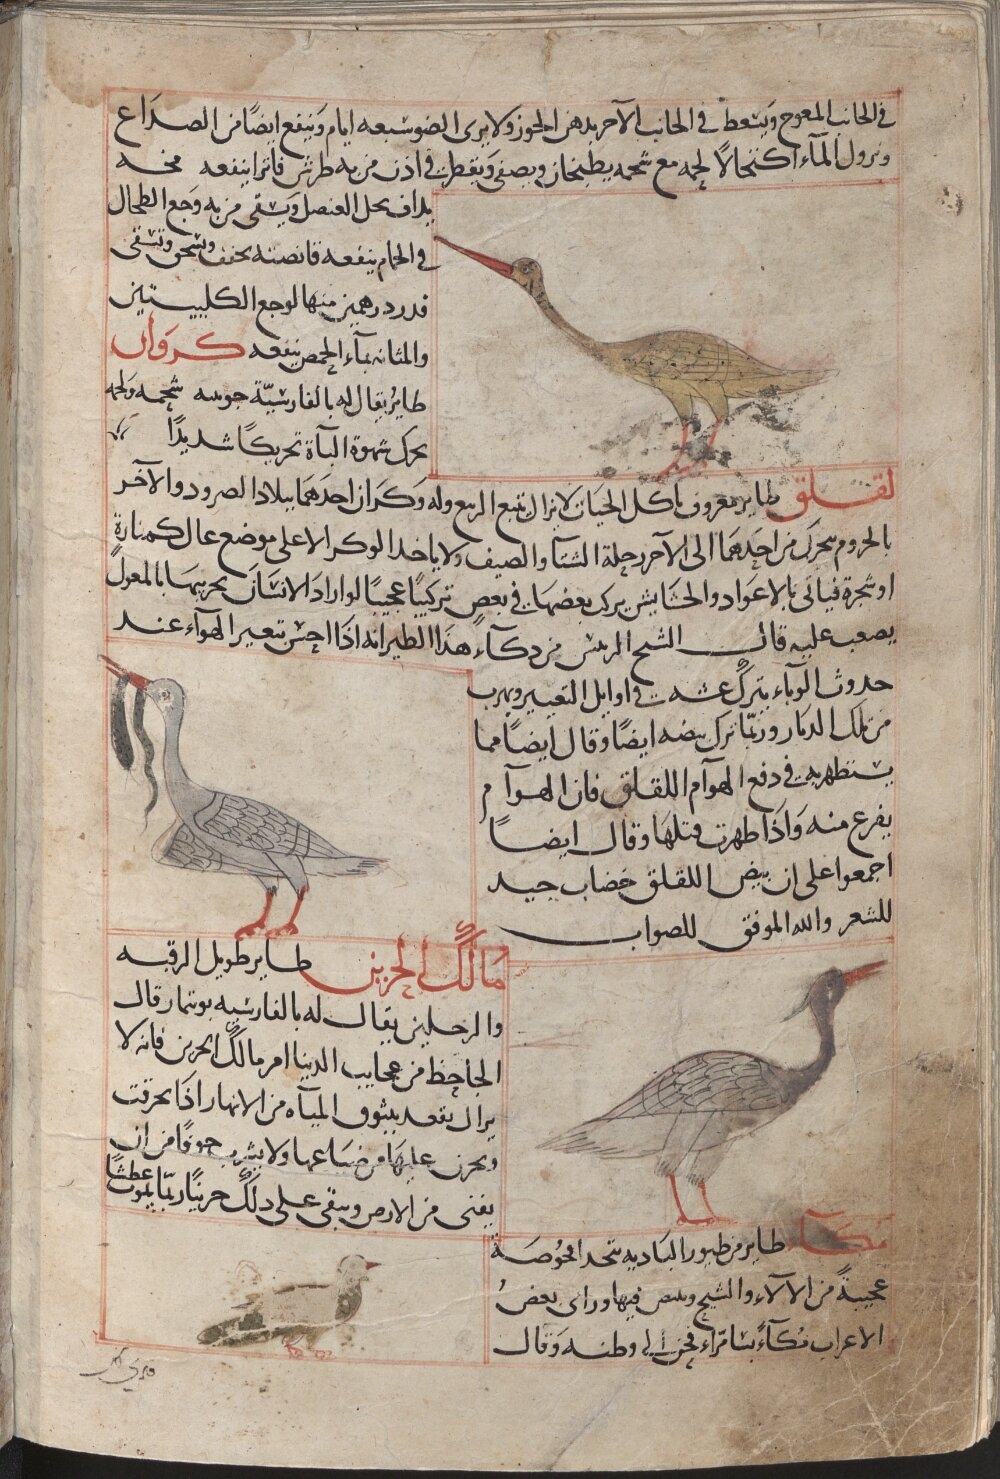 في الجانب المعوج ويسعط في الجانب الآخر بدهن الجوز ولا يرى الضو سبعه ايام وينفع ايضًا من الصداع
ونزول المآء اكتحالًا لحمه مع شحمه يطبخان ويصفى ويقطر في اذن من به طرش فاترا ينفعه مخه
يداف بخل العنصل ويسقى من به وجع الطحال
في الحمام ينفعه قانصته تجفف وتسحق وتسقى
قدر درهمين منها لوجع الكليتين
والمثانه بمآء الحمص ينفعه كروان
طاير يقال له بالفارسيّة شحمه ولحمه
يحرك شهوة البآة تحريكًا شديدًا
لقلق طاير معروف ياكل الحيات لا يزال يتبع الربيع وله وكران احدهما ببلاد الصرود والآخر
بالجروم يتحرك من احدهما الى الآخر رحلة الشتآ والصيف ولا ياخذ الوكر الا على موضع عال كمنارةٍ
او شجرة فياتى بالاعواد والحشايش يركب بعضها في بعض تركيبًا عجيبًا لو اراد الانسان يخربها بالمعول
يصعب عليه قال الشيخ الرئيس من ذكآء هذا الطير انه اذا احس بتغير الهوآء عند
حدوث الوباء يترك عشه في اوايل التغيير ويهرب
من تلك الديار وربّما ترك بيضه ايضًا وقال ايضًا مما
يستظهر به في دفع الهوآم اللقلق فان الهوآم
يفزع منه واذا ظهرت قتلها وقال ايضًا
اجمعوا على ان بيض اللقلق خضاب جيد
للشعر والله الموفق للصواب
مالك الحزين طاير طويل الرقبه
والرجلين يقال له بالفارسيه بوتيمار قال
الجاحظ من عجايب الدنيا امر مالك الحزين فانه لا
يزال يقعد ببثوق المياه من الانهار اذا
ويحزن عليها من ضياعها ولا يشرب خوفًا من ان
يفنى من الارض ويبقى على ذلك حزينًا ربّما يموت عطشًا
مكآء طاير من طيور الباديه يتخذ افحوصةً
عجيبةً من الالآء والشيح ويبيض فيها وراى بعض
الاعراب مكآءً بسامرّاء فحن الى وطنه وقال